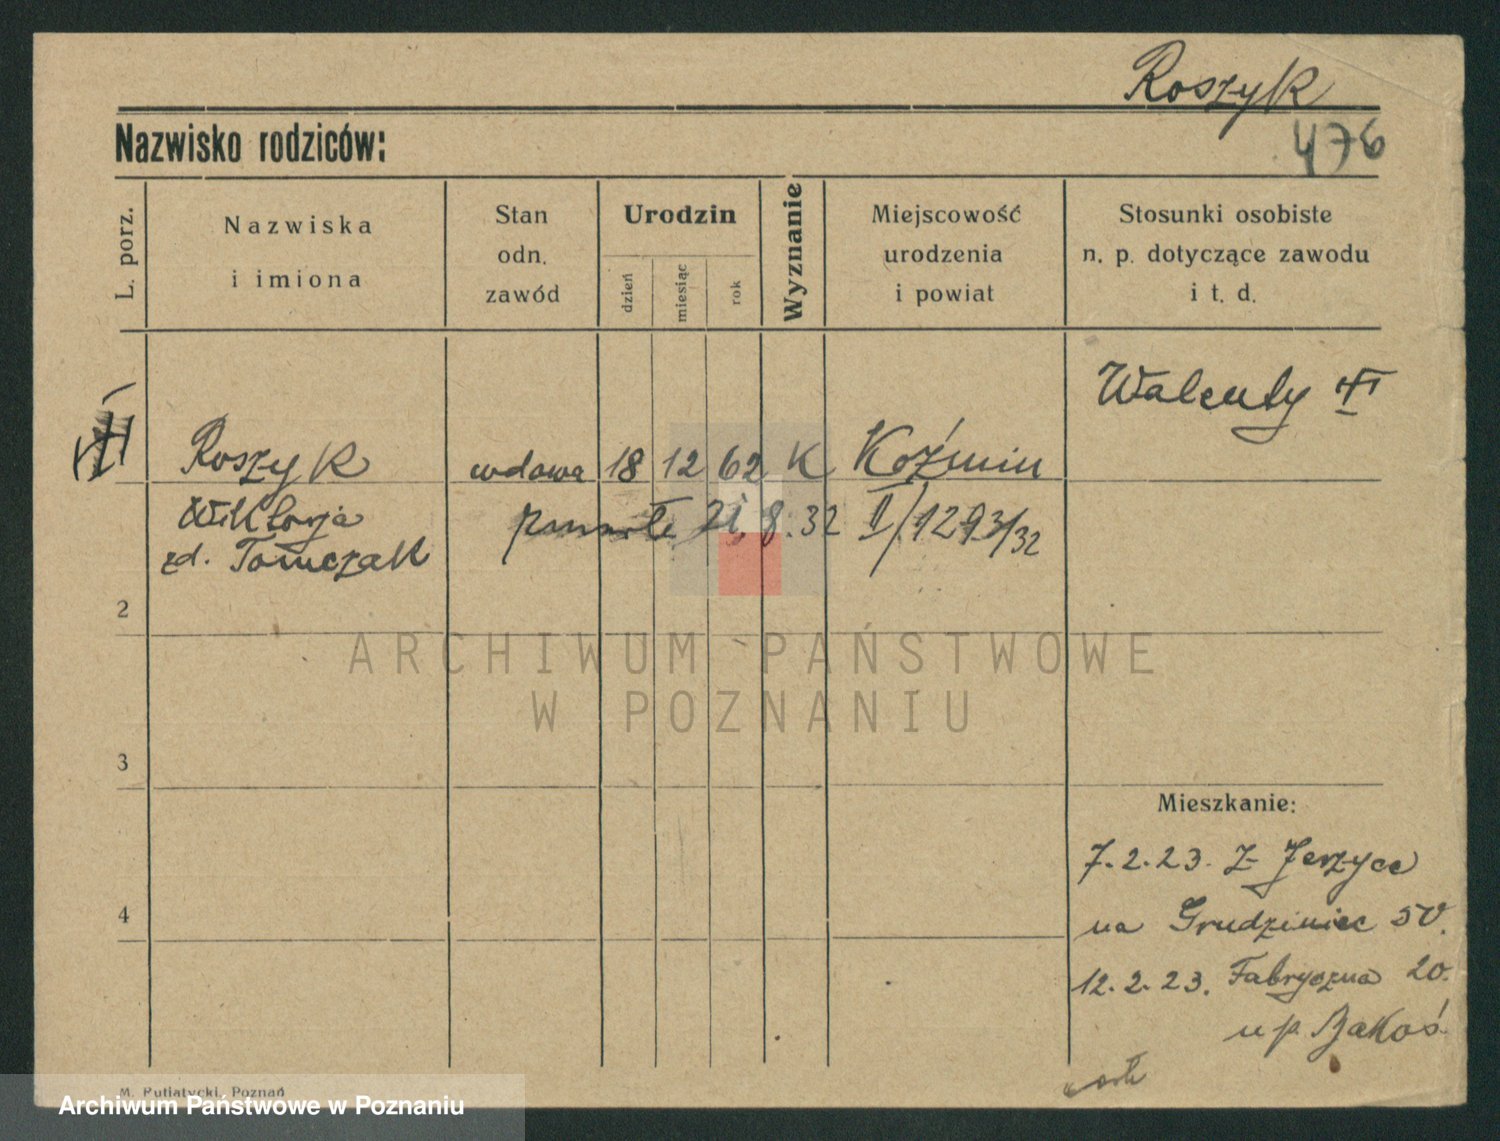 Roszyk
Nazwisko rodziców:
476
L. porz.
Nazwiska
i imiona
Stan
odn.
zawód
Urodzin
dzień
miesiąc
rok
Wyznanie
Miejscowość
urodzenia
i powiat
Stosunki osobiste
n. p. dotyczące zawodu
i t. d.
Walenty
Roszyk wdowa 18 12 62 K Koźmin
Wiktorja
zmarła 21.8.32 II/1293/32
zd. Tomczak
2
ARCHIWUM PAŃSTWOWE
W POZNANIU
3
Mieszkanie:
7.2.23. Z Jerzyce
4
na Grudziniec 50.
12.2.23. Fabryczna 20.
u p. Bąkoś
M. Putiatycki, Poznań
Archiwum Państwowe w Poznaniu